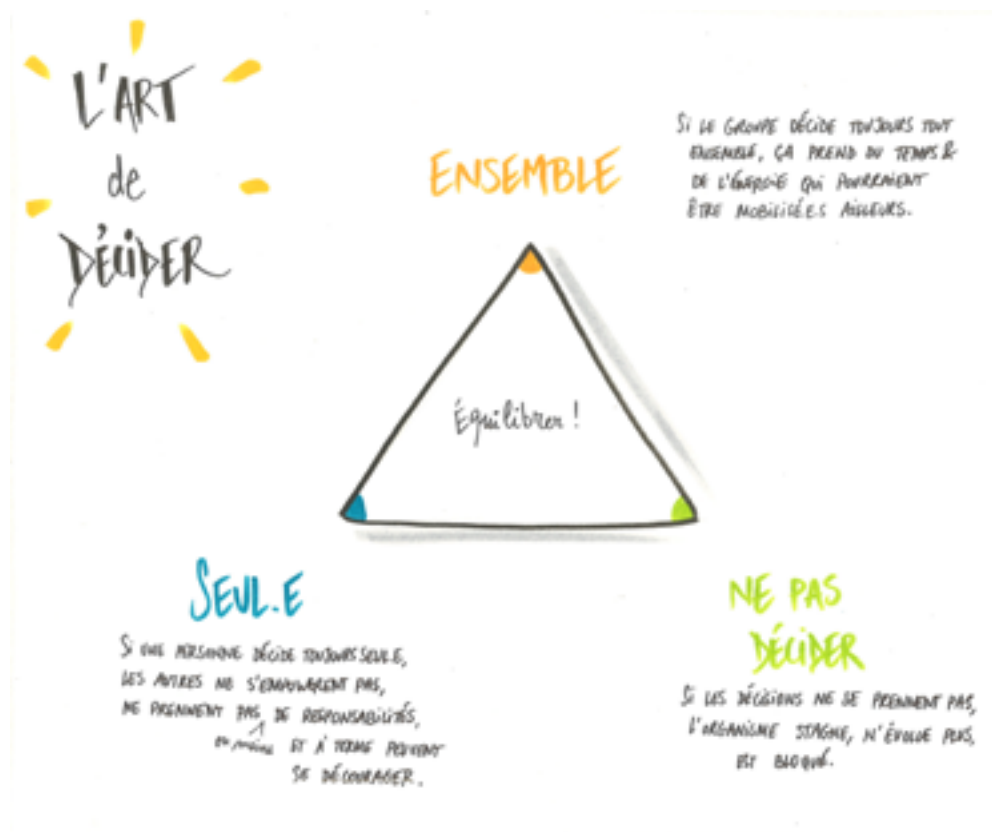 L'ART
de
DÉCIDER
ENSEMBLE
Si LE GROUPE DÉCIDE TOUJOURS TOUT
ENSEMBLE, ÇA PREND DU TEMPS &
DE L'ÉNERGIE QUI POURRAIENT
ÊTRE MOBILISÉ.E.S AILLEURS.
Équilibrer !
SEUL.E
Si UNE PERSONNE DÉCIDE TOUJOURS SEULE,
LES AUTRES NE S'EMPOWERENT PAS,
NE PRENNENT PAS DE RESPONSABILITÉS,
ou moins ET À TERME PEUVENT
SE DÉCOURAGER.
NE PAS
DÉCIDER
Si LES DÉCISIONS NE SE PRENNENT PAS,
L'ORGANISME STAGNE, N'ÉVOLUE PLUS,
EST BLOQUÉ.